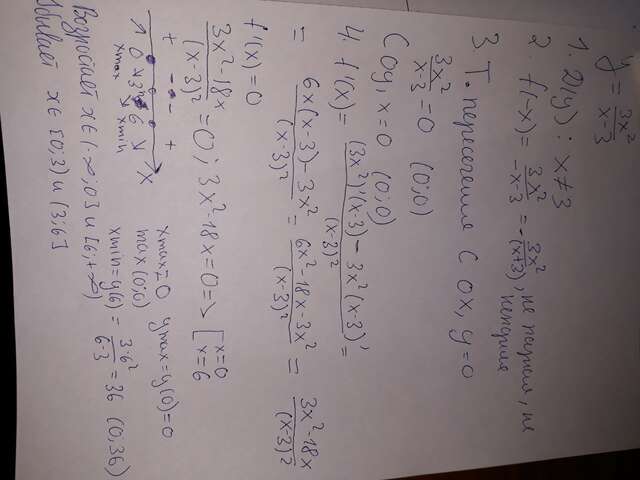 y = 3x²/x-3
1. D(y): x≠3
2. f(-x) = 3x²/-x-3 = 3x²/-(x+3), не парная, не
непарная
3 Т. пересечения с ox, y=0
3x²/x-3 = 0 (0;0)
С oy, x=0 (0;0)
4. f'(x) = (3x²)'(x-3) - 3x²(x-3)'/(x-3)² =
= 6x(x-3) - 3x²/(x-3)² = 6x²-18x-3x²/(x-3)² = 3x²-18x/(x-3)²
f'(x)=0
3x²-18x/(x-3)² = 0; 3x²-18x=0 => [x=0 x=6
+ - - + x
0 3 6
xmax xmin
xmax=0 ymax=y(0)=0
max(0;0)
xmin=y(6) = 3·6²/6-3 = 36 (0,36)
Возростает x∈(-∞,0] и [6;+∞)
Убывает x∈[0;3) и (3;6]